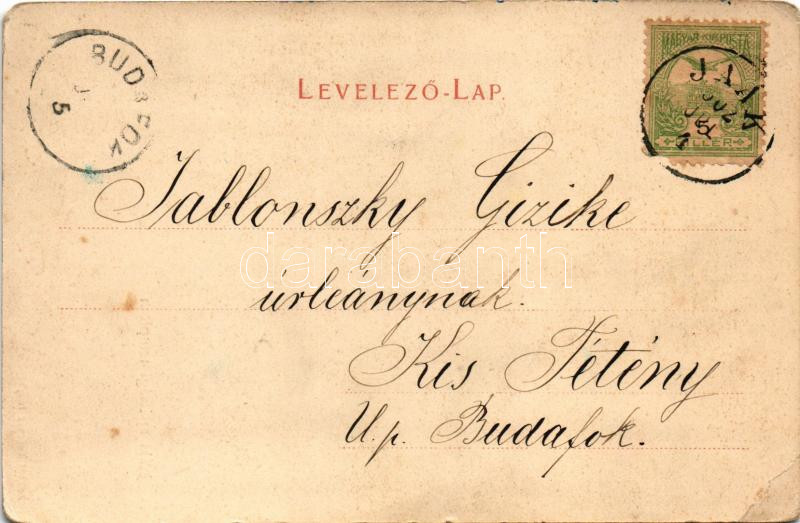 BUDAFOK
5
LEVELEZŐ-LAP.
MAGYAR KIR. POSTA
JAÁK
JUL
FILLÉR
Jablonszky Gizike
úrleánynak.
Kis Tétény
U. p. Budafok.
darabanth